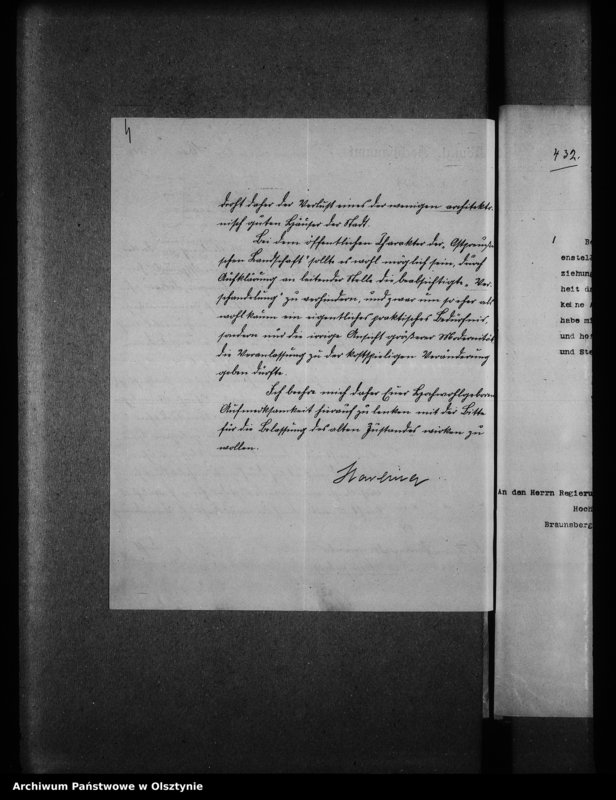 droht daher der Verlust eines der wenigen architekto-
nisch guten Häuser der Stadt.
Bei dem öffentlichen Charakter der „Ostpreußi-
schen Landschaft" sollte es wohl möglich sein, durch
Aufklärung an leitender Stelle die beabsichtigte „Ver-
schandelung" zu verhindern, und zwar um so eher als
wohl kaum ein eigentliches praktisches Bedürfnis,
sondern nur die irrige Ansicht größerer Modernität
die Veranlassung zu der kostspieligen Veränderung
geben dürfte.
Ich beehre mich daher Euer Hochwohlgeboren
Aufmerksamkeit hierauf zu lenken mit der Bitte
für die Belassung des alten Zustandes wirken zu
wollen.
432.
enstell
ziehung
heit dr
keine A
habe mi
und ho
und Ste
An den Herrn Regieru
Hoch
Braunsberg
Archiwum Państwowe w Olsztynie